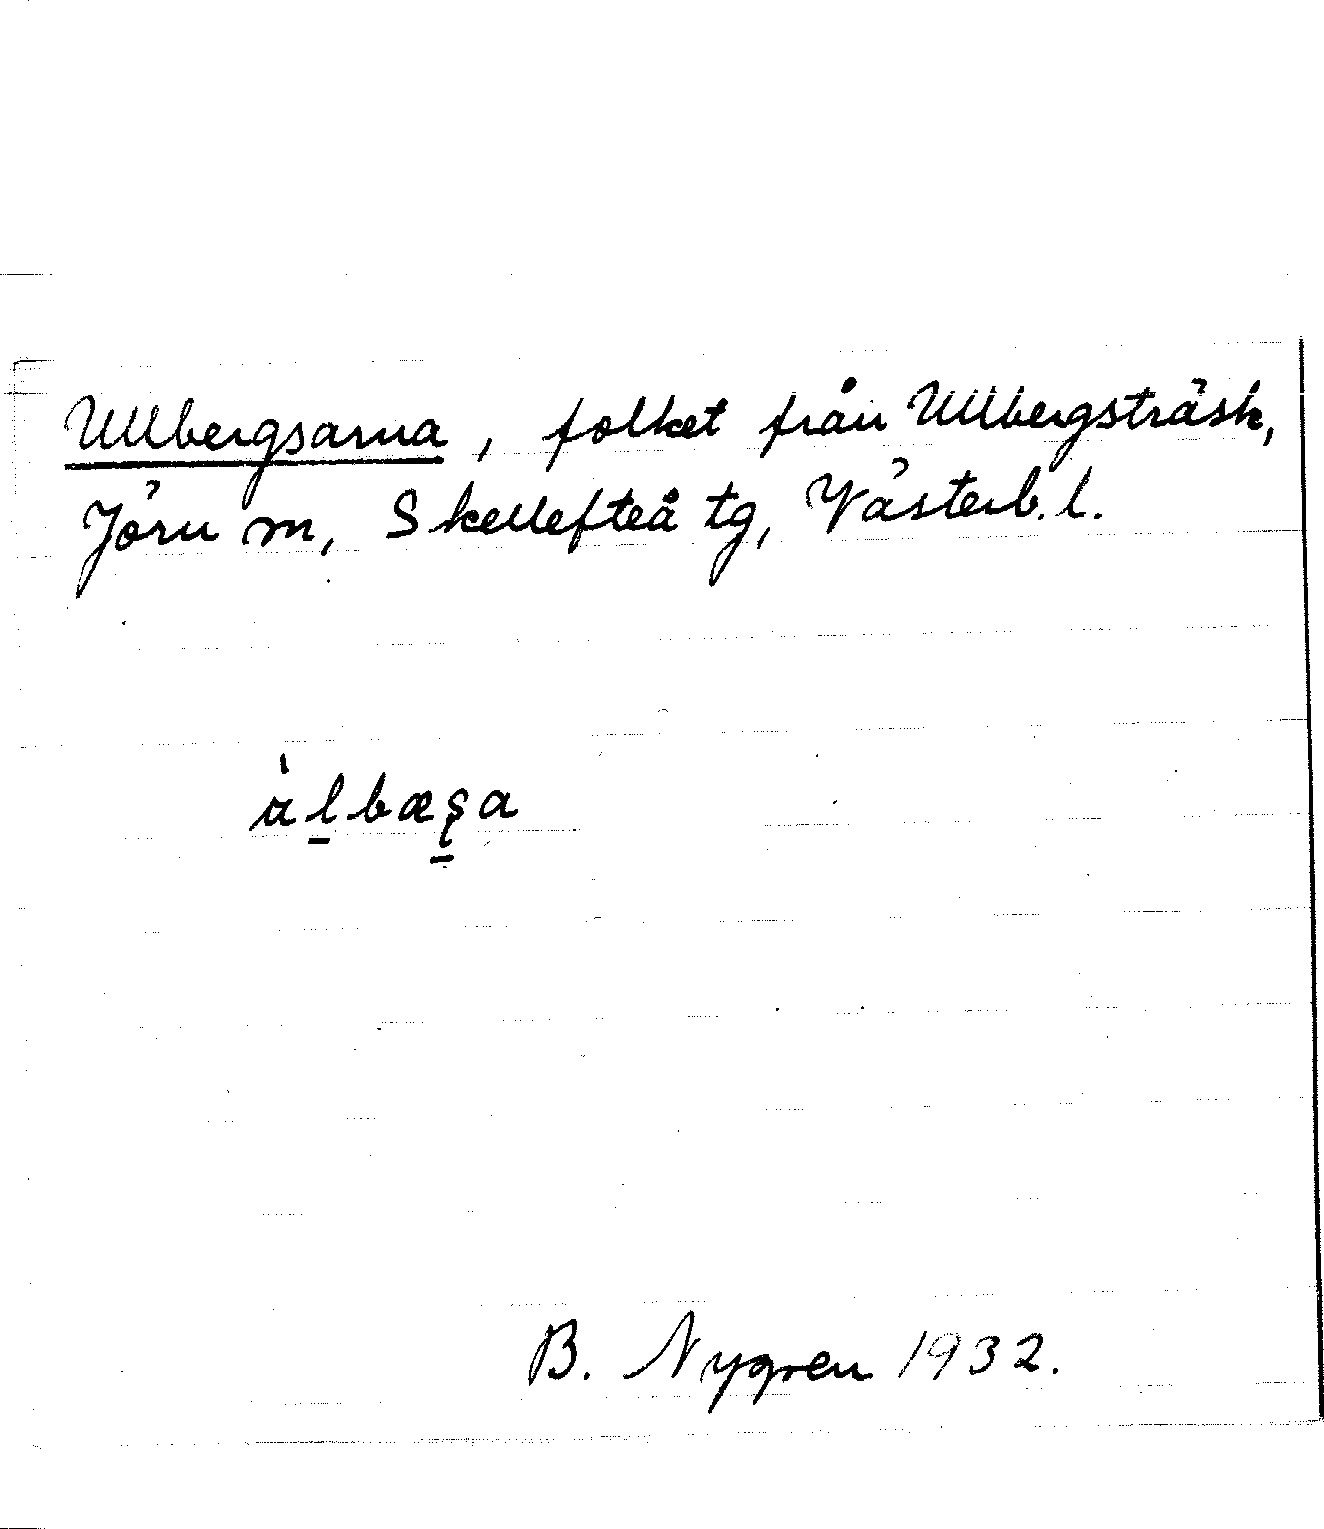 Ullbergsarna, folket från Ullbergsträsk,
Jörn m, Skellefteå tg, Västerb. l.
B. Nygren 1932.